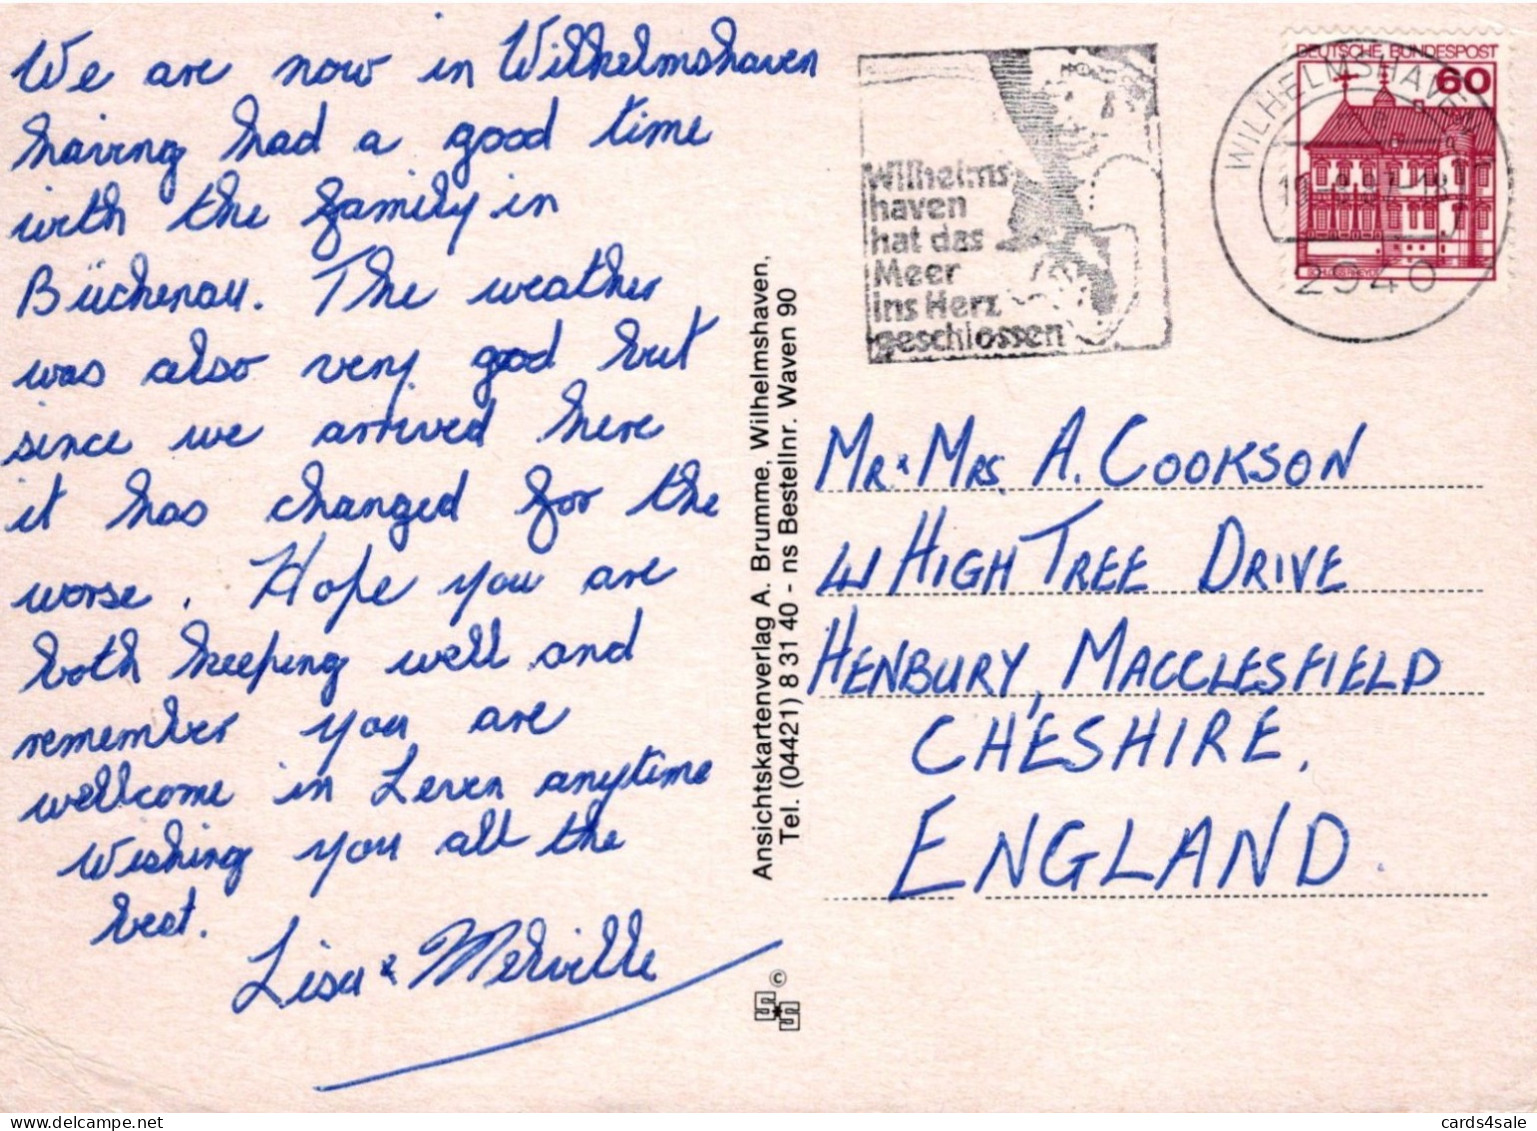 We are now in Wilhelmshaven
having had a good time
with the family in
Büchenau. The weather
was also very good but
since we arrived here
it has changed for the
worse. Hope you are
both keeping well and
remember you are
wellcome in Leven anytime
Wishing you all the
best.
Lisa & Melville
Ansichtskartenverlag A. Brumme, Wilhelmshaven,
Tel. (04421) 8 31 40 - ns Bestellnr. Waven 90
©
Wilhelms
haven
hat das
Meer
ins Herz
geschlossen
DEUTSCHE BUNDESPOST
60
WILHELMSHAVEN
2940
MR & MRS A. COOKSON
HIGH TREE DRIVE
HENBURY, MACCLESFIELD
CHESHIRE,
ENGLAND.
cards4sale